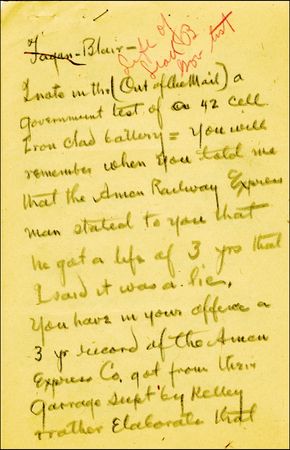 Fagan - Blair -
Life of
Lead B
Gov test
I note in the (Out of the Mail) a
government test of a 42 cell
Iron clad battery = You will
remember when you told me
that the Aman Railway Express
man stated to you that
he got a life of 3 yrs that
I said it was a lie,
You have in your offence a
3 yr record of the Aman
Express Co. got from their
Garrage Supt by Kelley
rather Elaborate that